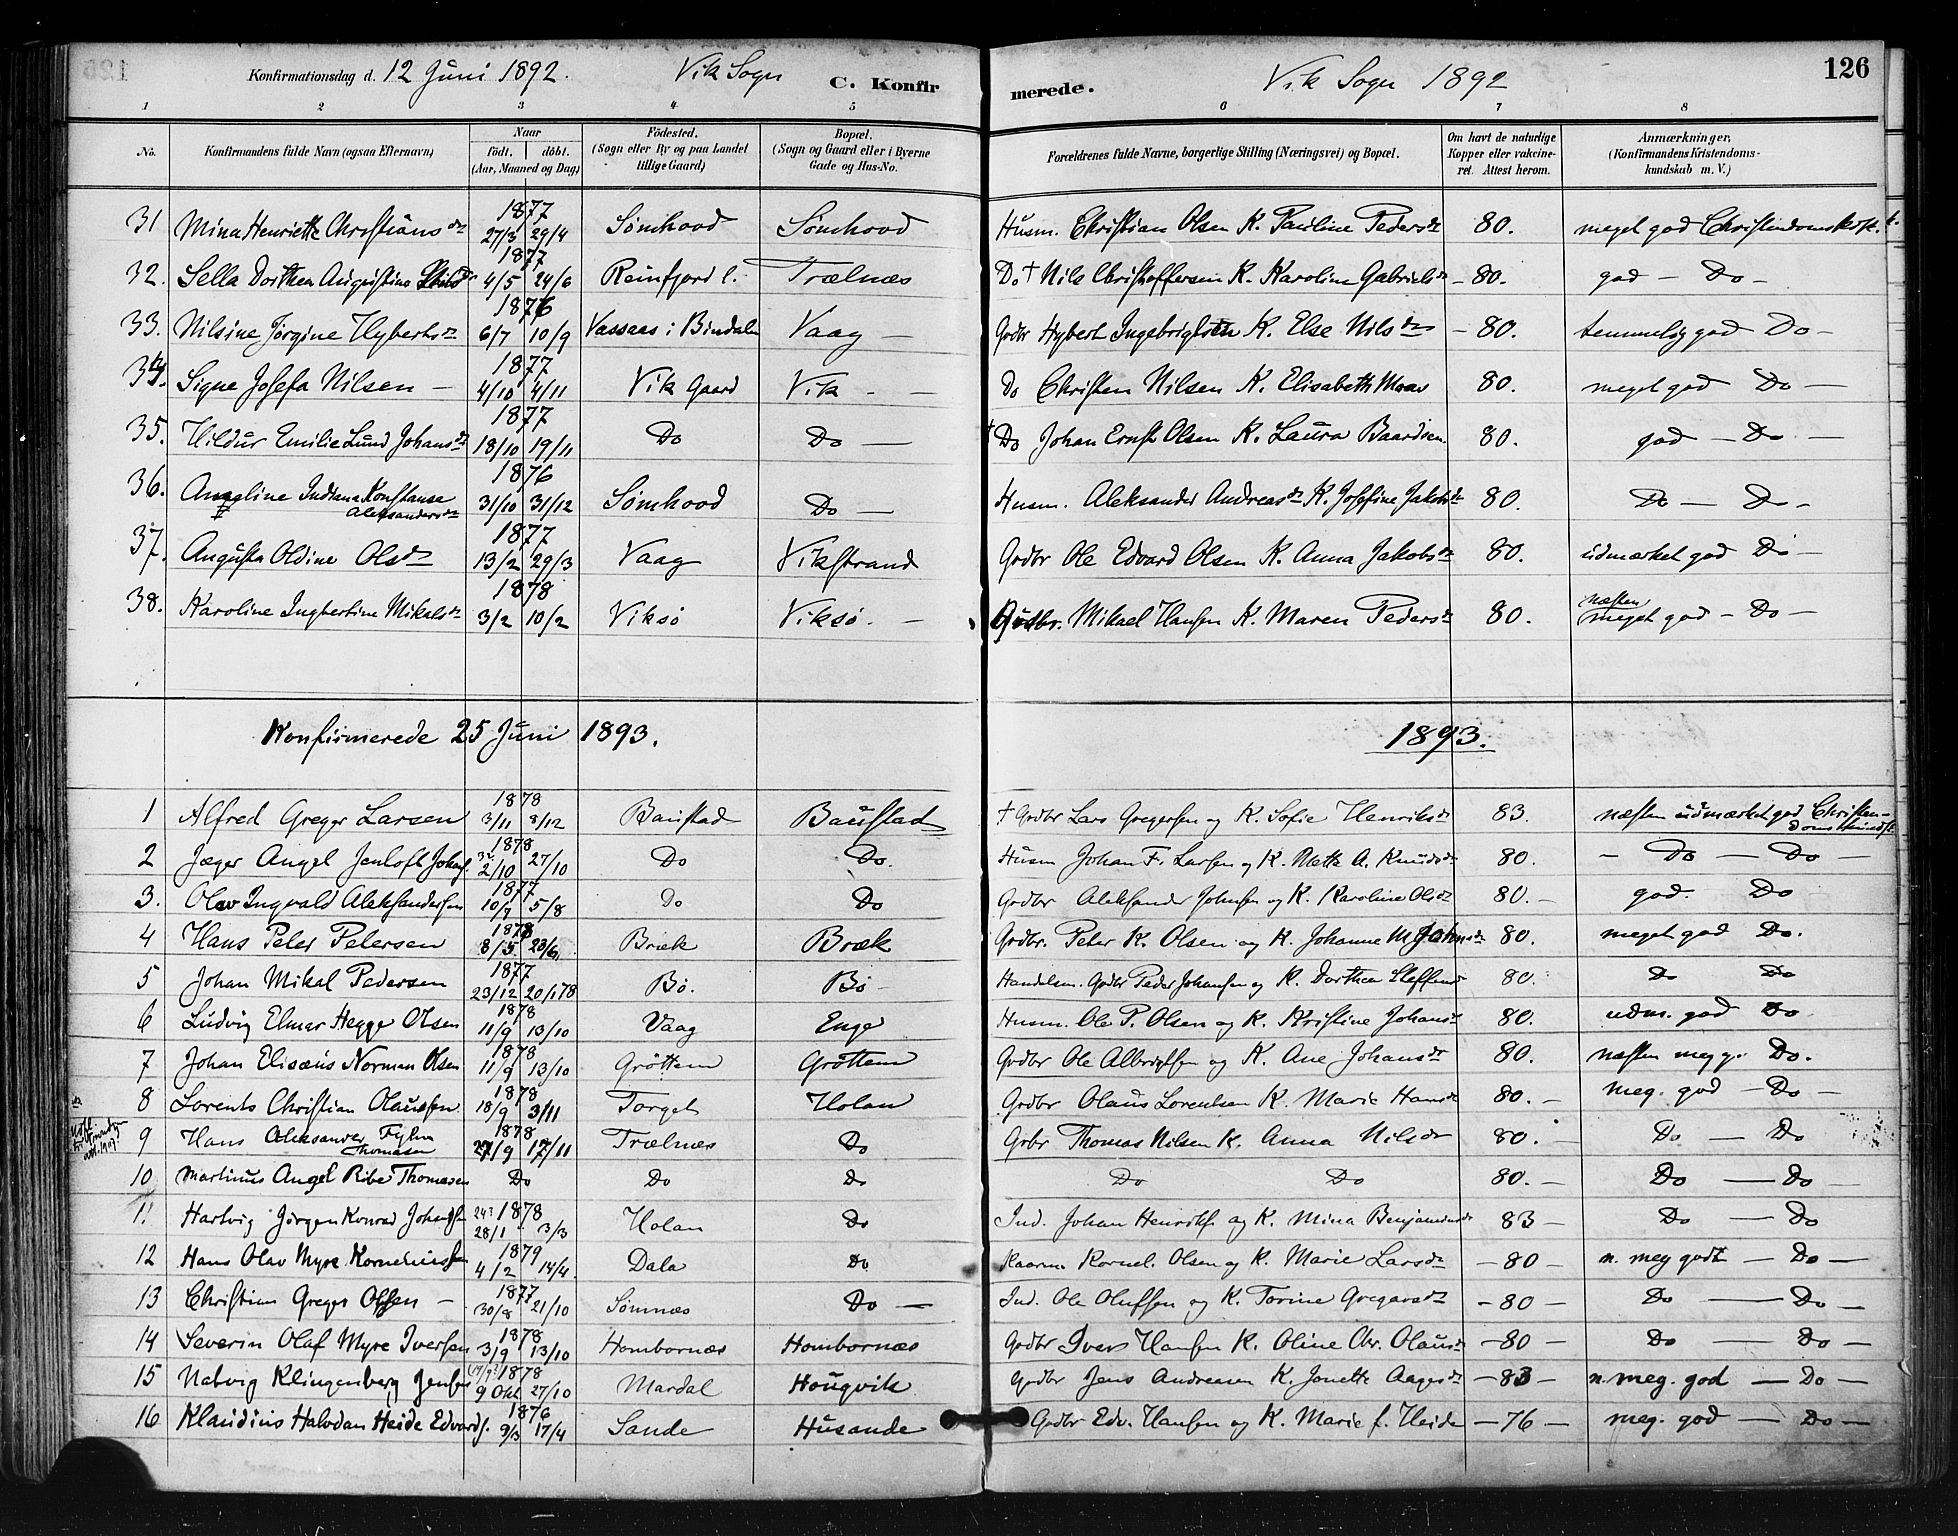 Konfirmationsdag d. 12 Juni 1892. Vik Sogn C. Konfirmerede. Vik Sogn 1892 126
1 2 3 4 5 6 7 8
No. Konfirmandens fulde Navn (ogsaa Efternavn) Naar født. døbt. (Aar, Maaned og Dag) Fødested. (Sogn eller By og paa Landet tillige Gaard) Bopæl. (Sogn og Gaard eller i Byerne Gade og Hus-No. Forældrenes fulde Navne, borgerlige Stilling (Næringsvei) og Bopæl. Om havt de naturlige Kopper eller vakcineret. Attest herom. Anmærkninger, (Konfirmandens Kristendomskundskab m. V.)
31 Mina Henriette Christiansdr 1877 27/3 29/4 Sømhovd Sømhovd Husm. Christian Olsen K. Pauline Pedersdr 80. meget god Christendomskdsk.
32. Sella Dorthea Augustine 1877 4/5 24/6 Reinfjord Trælnæs Do † Nils Christoffersen K. Karoline Gabrielsdr - 80. god - Do -
33. Nilsine Jørgine Hybertsdr 1876 6/7 10/9 Vassaas i Bindalen Vaag - Gdbr Hybert Ingebrigtsen K. Else Nilsdr - 80. temmelig god Do -
34. Signe Josefa Nilsen - 1877 4/10 4/11 Vik Gaard Vik - - Do Christen Nilsen K. Elisabeth 80. meget god Do -
35. Hildur Emilie Lund Johansdr 1877 18/10 19/11 Do Do - † Do Johan Ernst Olsen K. Laura Baardsen 80. god - Do -
36. Angeline Indiana Konstanse Aleksandersdr 1876 31/10 31/12 Sømhovd Do - Husm. Aleksander Andreas K. Josefine Jakobsdr 80. Do - Do -
37. Augusta Oldine Olsdr 1877 13/2 29/3 Vaag Vikstrand Gdbr Ole Edvard Olsen K. Anna Jakobsdr 80. udmærket god Do -
38. Karoline Ingbertine Mikalsdr 1878 3/2 10/2 Viksø Viksø. - Gdbr. Mikael Hansen K. Maren Pedersdr 80. næsten meget god - Do -
Konfirmerede 25 Juni 1893. 1893.
1 Alfred Greger Larsen 1878 3/11 8/12 Baustad Baustad † Gdbr Lars Gregersen og K. Sofie Henriksdr 83. næsten udmærket god Christendomskundsk.
2 Jæger Angel Jenloft Johs. 1878 2/10 27/10 Do Do. Husm Johan F. Larsen og K. Mette A. Knudsdr 80. - Do - Do -
3. Olav Ingvald Aleksandersen 1877 10/7 5/8 Do Do Gdbr Aleksander Johnsen og K. Karoline Olsdr 80. - god. Do
4 Hans Peter Petersen 1878 8/5 23/6 Bræk Bræk Gdbr. Peter K. Olsen og K. Johanne M 80. meget god Do.
5 Johan Mikal Pedersen 1877 23/12 20/1 78 Bø. Bø - Handelsm. Gdbr Peder Johansen og K. Dorthea Steffensdr 80. Do Do
6 Ludvig Elmar Hegge Olsen 1878 11/9 13/10 Vaag Enge Husm. Ole P. Olsen og K. Kristine Johansdr 80. udm. god Do
7 Johan Elisæus Norman Olsen 1878 11/9 13/10 Grøttem Grøttem Gdbr Ole Albrigtsen og K. Ane Johansdr 80. næsten meg g. Do.
8 Lorents Christian Olaussen 1878 18/9 3/11 Torget Holan Gdbr Olaus Lorentsen K. Marie Hansdr 80. - meg. god - Do -
9 Hans Aleksander Fylm Thomasen 1878 27/9 17/11 Trælnæs Do Gdbr Thomas Nilsen K. Anna Nilsdr 80. - Do - Do
10 Martinus Angel Ribe Thomasen Do Do Do Do Do 80. - Do - Do -
11 Hartvig Jørgen Konrad Johansen 24? 1878 28/1 3/3 Holan Do Ind. Johan Henriks. og K. Mina Benjaminsdr 83 - Do - Do
12 Hans Olav Myre Korneliussen 1879 4/2 14/4. Dala Do Kaarm Kornel. Olsen og K. Marie Larsdr - 80 - n. meg godt - Do -
13 Christian Greger Olsen - 1877 30/8 21/10 Sømnæs Do - Ind. Ole Olufsen og K. Torine Gregersdr - 80 - Do - Do -
14 Severin Olaf Myre Iversen 1878 3/9 13/10 Hombornæs Hombornæs Gdbr Iver Hansen K. Oline Chr. Olausdr - 80 Do - Do -
15 Natvig Klingenberg Jensen (17/9?) 1878 9 Okt. 27/10 Mardal Hougvik Gdbr Jens Andreasen K. Jonette Aagesdr - 83 - n. meg. god - Do -
16 Klaudius Halvdan Heide Edvards. 1876 9/3 17/4 Sande Husande Gdbr Edv. Hansen og K. Marie f. Heide - 76 - meg. god - Do -